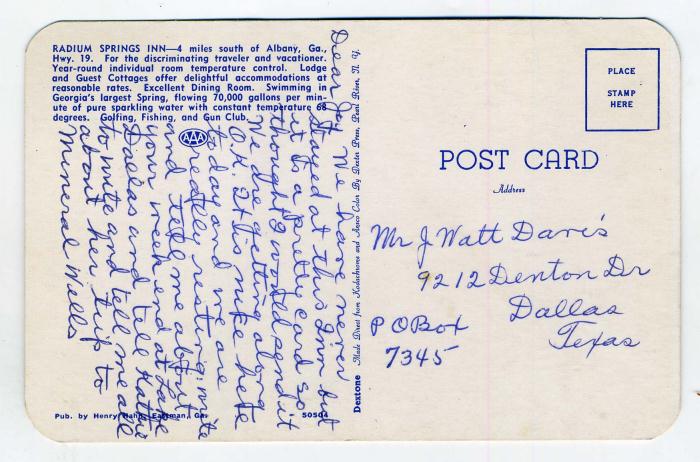 RADIUM SPRINGS INN—4 miles south of Albany, Ga.,
Hwy. 19. For the discriminating traveler and vacationer.
Year-round individual room temperature control. Lodge
and Guest Cottages offer delightful accommodations at
reasonable rates. Excellent Dining Room. Swimming in
Georgia's largest Spring, flowing 70,000 gallons per min-
ute of pure sparkling water with constant temperature 68
degrees. Golfing, Fishing, and Gun Club.
AAA
Dear Jay We have never
stayed at this Inn but
it is a pretty card so
thought I would send it
We are getting along
O.K. It is nice here
today and we are
really resting. write
and tell me about
your weekend at Lake
Dallas and tell
to write and tell me all
about her trip to
Mineral Wells
Pub. by Henry Hahn, Eastman, Ga.
50504
Dextone
Made Direct from Kodachrome and Ansco Color By Dexter Press, Pearl River, N. Y.
PLACE
STAMP
HERE
POST CARD
Address
Mr J Watt Davis
9212 Denton Dr
Dallas
Texas
P O Box
7345